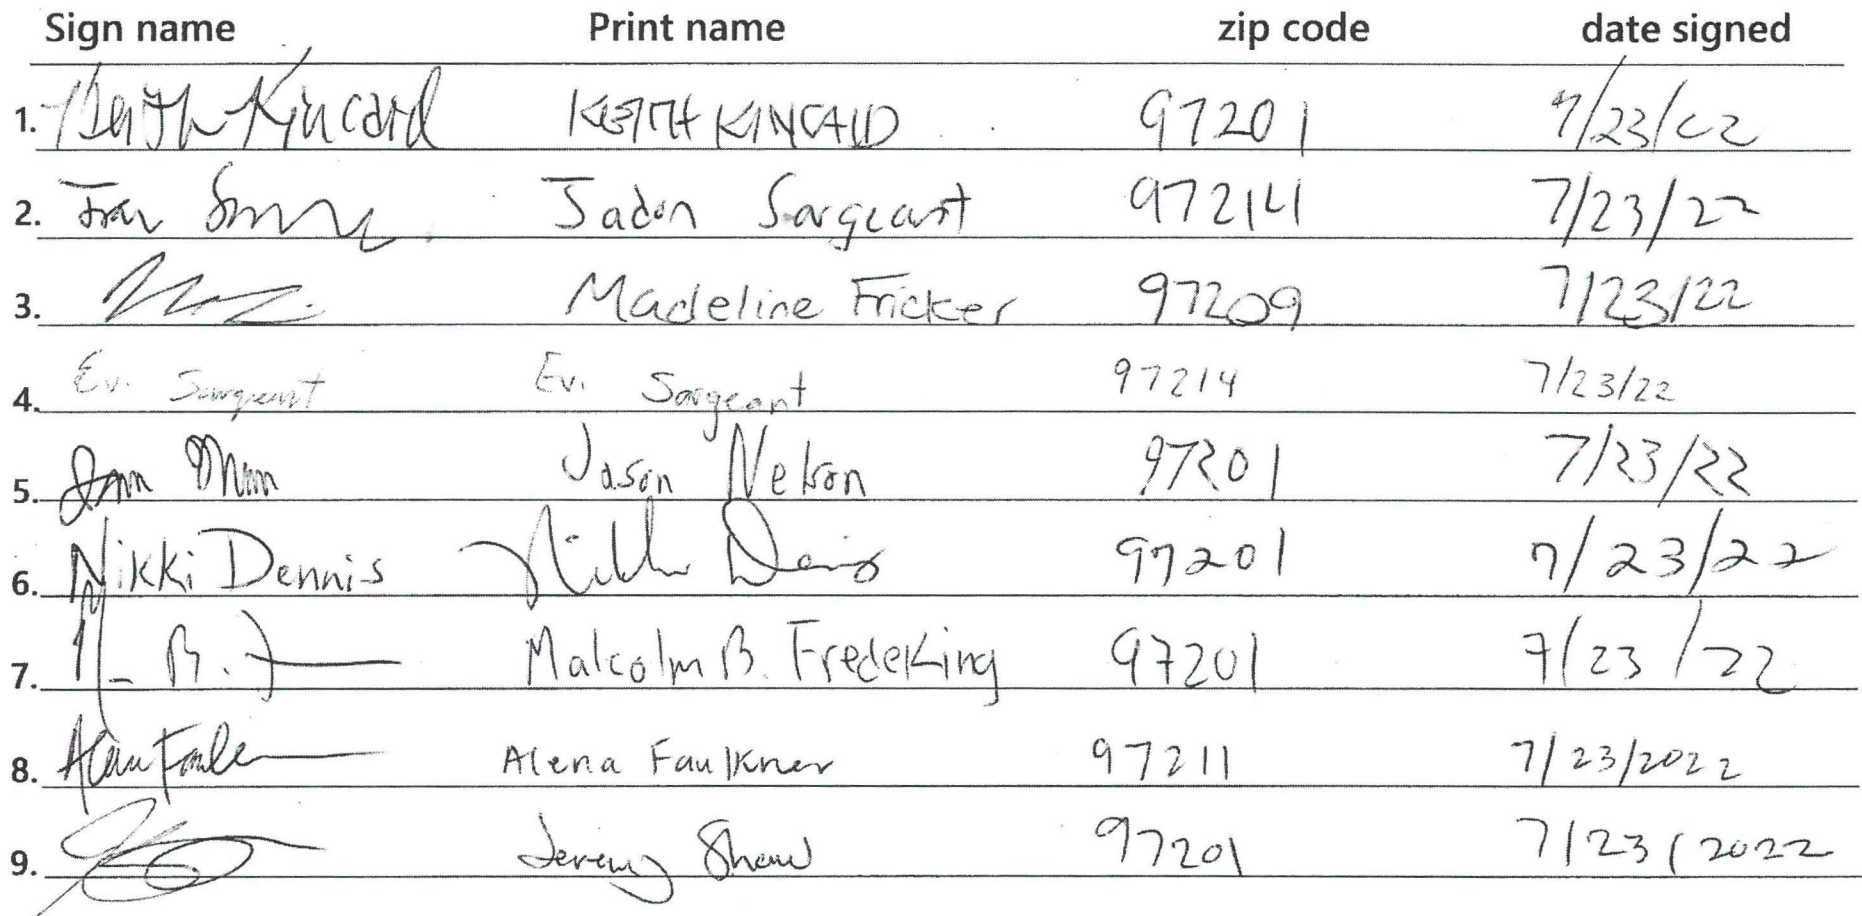 Sign name Print name zip code date signed
1. Keith Kincaid KEITH KINCAID 97201 7/23/22
2. Jadon Sargeant 97214 7/23/22
3. Madeline Fricker 97209 7/23/22
4. Ev. Sargeant Ev. Sargeant 97214 7/23/22
5. Jason Nelson 97201 7/23/22
6. Nikki Dennis 97201 7/23/22
7. M B. Malcolm B. Fredeking 97201 7/23/22
8. Alena Faulkner 97211 7/23/2022
9. Jeremy Shaw 97201 7/23/2022